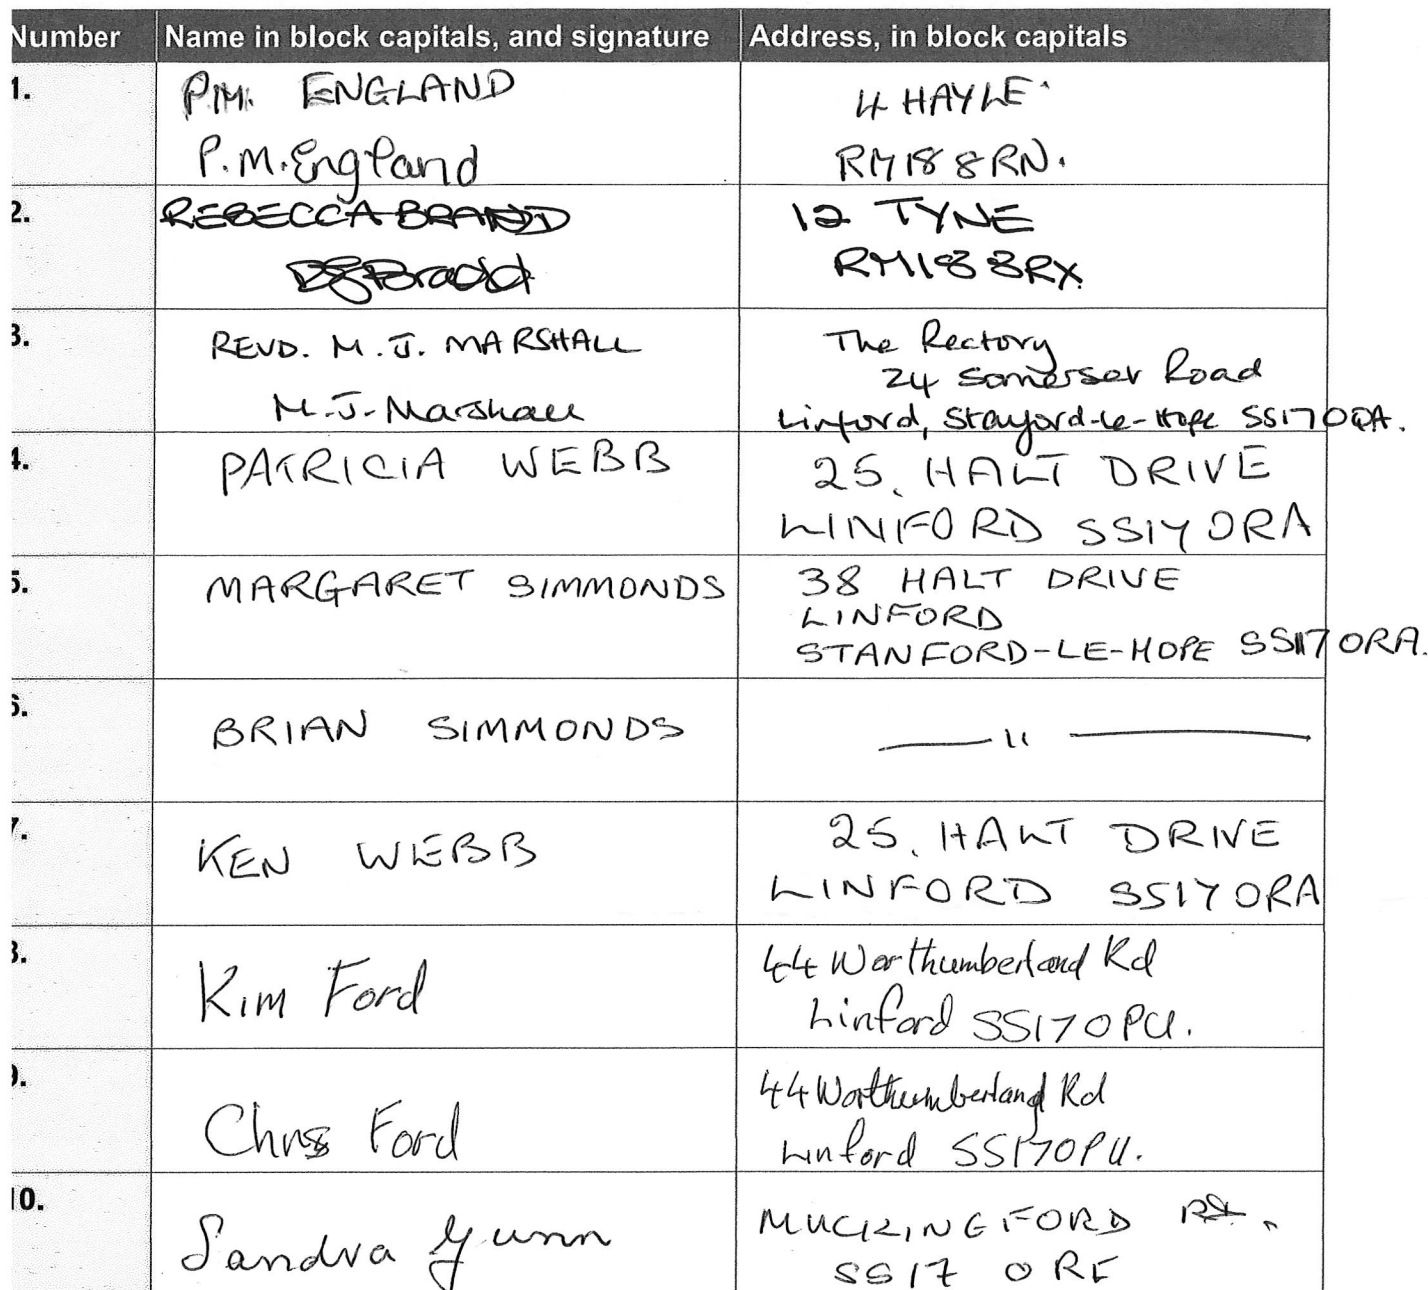 Number Name in block capitals, and signature Address, in block capitals
1. P.M. ENGLAND 4 HAYLE.
P.M. England RM18 8RN.
2. REBECCA BRAND 12 TYNE
RM18 8RX
3. REVD. M. J. MARSHALL The Rectory
24 Somerset Road
M.J. Marshall Linford, Stanford-le-Hope SS17 0QA.
4. PATRICIA WEBB 25. HALT DRIVE
LINFORD SS17 0RA
5. MARGARET SIMMONDS 38 HALT DRIVE
LINFORD
STANFORD-LE-HOPE SS17 0RA.
6. BRIAN SIMMONDS — 11 —
7. KEN WEBB 25. HALT DRIVE
LINFORD SS17 0RA
8. Kim Ford 44 Northumberland Rd
Linford SS17 0PU.
9. Chris Ford 44 Northumberland Rd
Linford SS17 0PU.
10. Sandra Gunn MUCKINGFORD RD.
SS17 0RF